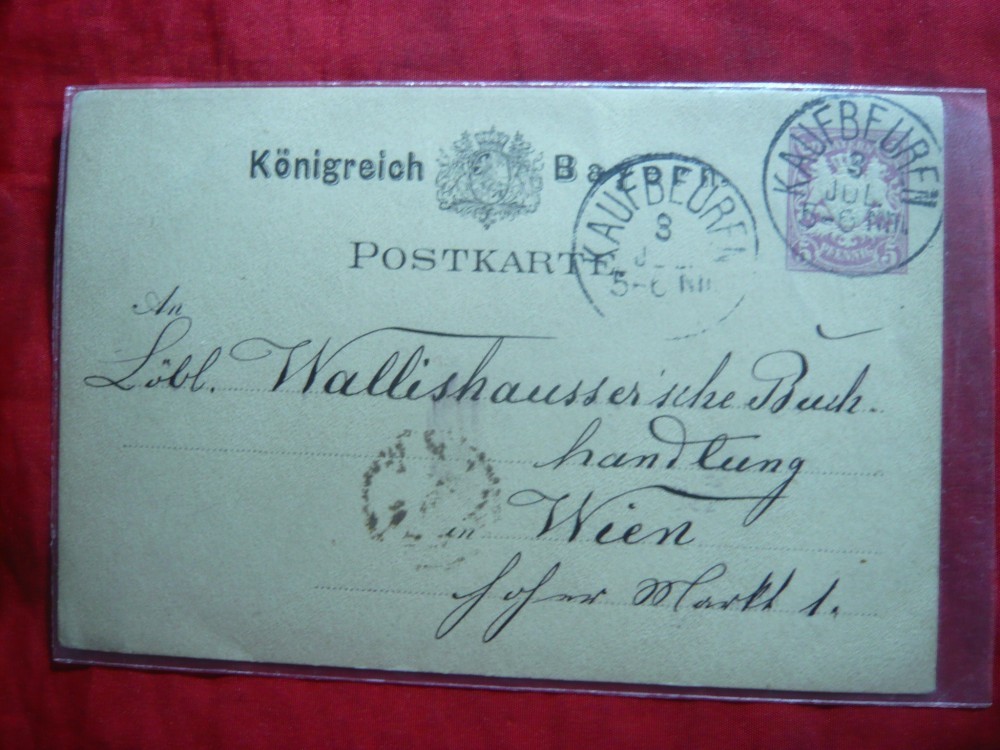 Königreich Bayern.
POSTKARTE
KAUFBEUREN
3
J
5-6 NM.
KAUFBEUREN
3
JUL
5-6 NM.
5 PFENNIG 5
An
Löbl. Wallishausser'sche Buch-
handlung
in Wien
hoher Markt 1.